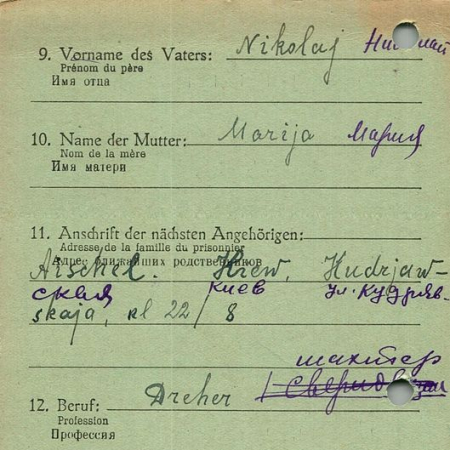 9. Vorname des Vaters: Nikolaj
Prénom du père
Имя отца
10. Name der Mutter: Marija Мария
Nom de la mère
Имя матери
11. Anschrift der nächsten Angehörigen:
Adresse de la famille du prisonnier
Адрес ближайших родственников
Kiew, Kudrjaw-
ская Киев ул. Кудряв-
skaja, 22/8
шахтер
12. Beruf: Dreher
Profession
Профессия